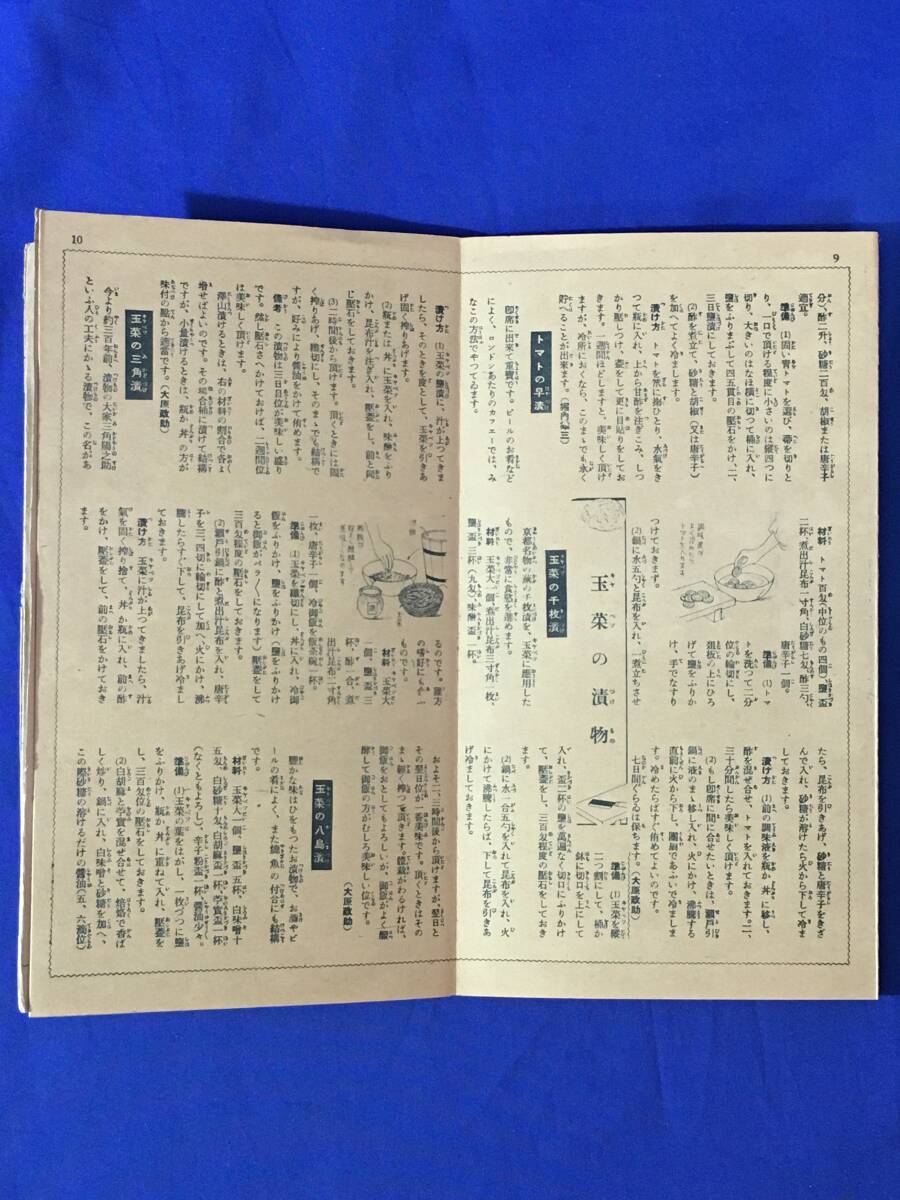 9
分)、酢二升、砂糖二百匁、胡椒または唐辛子
適宜。
準備 (1)固い靑トマトを選び、蔕を切りと
り、一口で頂ける程度に小さいのは縱四つに
切り、大きいのはなほ橫に切つて桶に入れ、
鹽をふりまぶして四五貫目の壓石をかけ、二、
三日鹽漬にしておきます。
(2)酢を煮立て、砂糖と胡椒(又は唐辛子)
を加へてよく冷まします。
漬け方 トマトを笊に掬ひとり、水氣をき
つて瓶に入れ、上から甘酢を注ぎこみ、しつ
かり壓しつけ、蓋をして更に目貼りをしてお
きます。一週間ほどしますと、美味しく頂け
ますが、冷所においくなら、このまゝでも永く
貯へることが出來ます。(堀內榮三)
トマトの早漬
卽席に出來て重寶です。ビールのお肴など
によく、ロンドンあたりのカフェーでは、み
なこの方法でやつてゐます。
材料 トマト百匁(中位のもの四個)、鹽盃
二杯、煮出汁昆布一寸角、白砂糖七匁、酢三勺、
唐辛子一個。
準備 (1)トマ
トを洗つて二分
位の輪切にし、
俎板の上にひろ
げて鹽をふりか
け、手でなすり
つけておきます。
(2)鍋に水五勺と昆布を入れ、一煮立ちさせ
玉菜の漬物
玉菜の千枚漬
京都名物の蕪の千枚漬を、玉菜に應用した
もので、非常に食慾を進めます。
材料 玉菜大一個、煮出汁昆布三寸角一枚、
鹽盃三杯(八匁)、味醂盃一杯。
たら、昆布を引きあげ、砂糖と唐辛子をきざ
んで入れ、砂糖が溶けたら火から下して冷ま
しておきます。
漬け方 (1)前の調味液を瓶か丼に移し、
酢を混ぜ合せ、トマトを入れておきます。二、
三十分間したら美味しく頂けます。
(2)もし卽席に間に合せたいときは、瀨戶引
鍋に液のまゝ移し入れ、火にかけ、沸騰する
直前に火から下し、團扇であふいで冷ましま
す。冷めたらすぐ侑めてよいのです。
七日間ぐらゐは保ちます。(大原政助)
準備 (1)玉菜を縱
二つに割にして、桶か
鉢に切口を上にして
入れ、盃二杯の鹽を萬遍なく切口にふりかけ
て、壓蓋をし、三百匁程度の壓石をしておき
ます。
(2)鍋に水一合五勺を入れて昆布を入れ、火
にかけて沸騰したらば、下して昆布を引きあ
10
げ固く搾りあげます。
漬け方 (1)玉菜の鹽漬に、汁が上つてきま
したら、そのときを度として、玉菜を引きあ
(2)瓶または丼に玉菜を入れ、味醂をふり
かけ、昆布汁を注ぎ入れ、壓蓋をし、前と同
じ壓石をしておきます。
(3)二時間後から頂けます。頂くときには固
く搾りあげ、纖切にし、そのまゝでも結構で
すが、好みにより醬油をかけて侑めます。
備考 この漬物は三日目位が美味しい盛り
です。然し壓石さへかけておけば、二週間位
は美味しく頂けます。
澤山漬けるときは、右の材料の割合で各々
增せばよいのです。その場合桶に漬けて結構
ですが、小量漬けるときは、瓶か丼の方が
味付の點から適當です。(大原政助)
玉菜の三角漬
今より約三百年前、漬物の大家三角陽之助
といふ人の工夫にかゝる漬物で、この名があ
るのです。職方
の嗜好にもむふ
ものです。
材料 玉菜大
一個、鹽盃三
杯、酢一合、煮
出汁昆布二寸角
一枚、唐辛子一個、冷御飯を飯茶碗一杯。
準備 (1)玉菜を纖切にし、丼に入れ、冷御
飯をふりかけ、鹽をふりかけ(鹽をふりかけ
ると御飯がバラ〳〵になります)壓蓋をして
三百匁程度の壓石をしておきます。
(2)瀨戶引鍋に酢と煮出汁昆布を入れ、唐辛
子を三、四切に輪切にして加へ、火にかけ、沸
騰したらすぐ下して、昆布を引きあげ冷まし
ておきます。
漬け方 玉菜に汁が上つてきましたら、汁
氣を固く搾り捨て、丼か瓶に入れ、前の酢
をかけ、壓蓋をして、前の壓石をかけておき
ます。
およそ二、三時間後から頂けますが、翌日と
その翌日位が一番美味です。頂くときは
まゝ輕く搾つて頂きます。體裁がわるければ、
御飯をおとしてもよろしいが、御飯がよく醱
酵して御飯の方がむしろ美味しい位です。
(大原政助)
玉菜の八島漬
豐かな味はひをもつたお漬物で、お酒やビ
ールの肴によく、また燒魚の付合にも結構
です。
材料 玉菜大一個、鹽盃五杯、白味噌十
五匁、白砂糖十匁、白胡麻盃一杯、苧實盃一杯
(なくともよろし)、辛子粉盃一杯、醬油少々。
準備 (1)玉菜の葉をはがし、一枚づつに鹽
をふりかけ、瓶か丼に重ねて入れ、壓蓋を
し、三百匁位の壓石をしておきます。
(2)白胡麻と苧實を混ぜ合せて、焙烙で香ば
しく炒り、鍋に入れ、白味噌と砂糖を加へ、
この際砂糖の溶けるだけの醬油(五、六滴位)